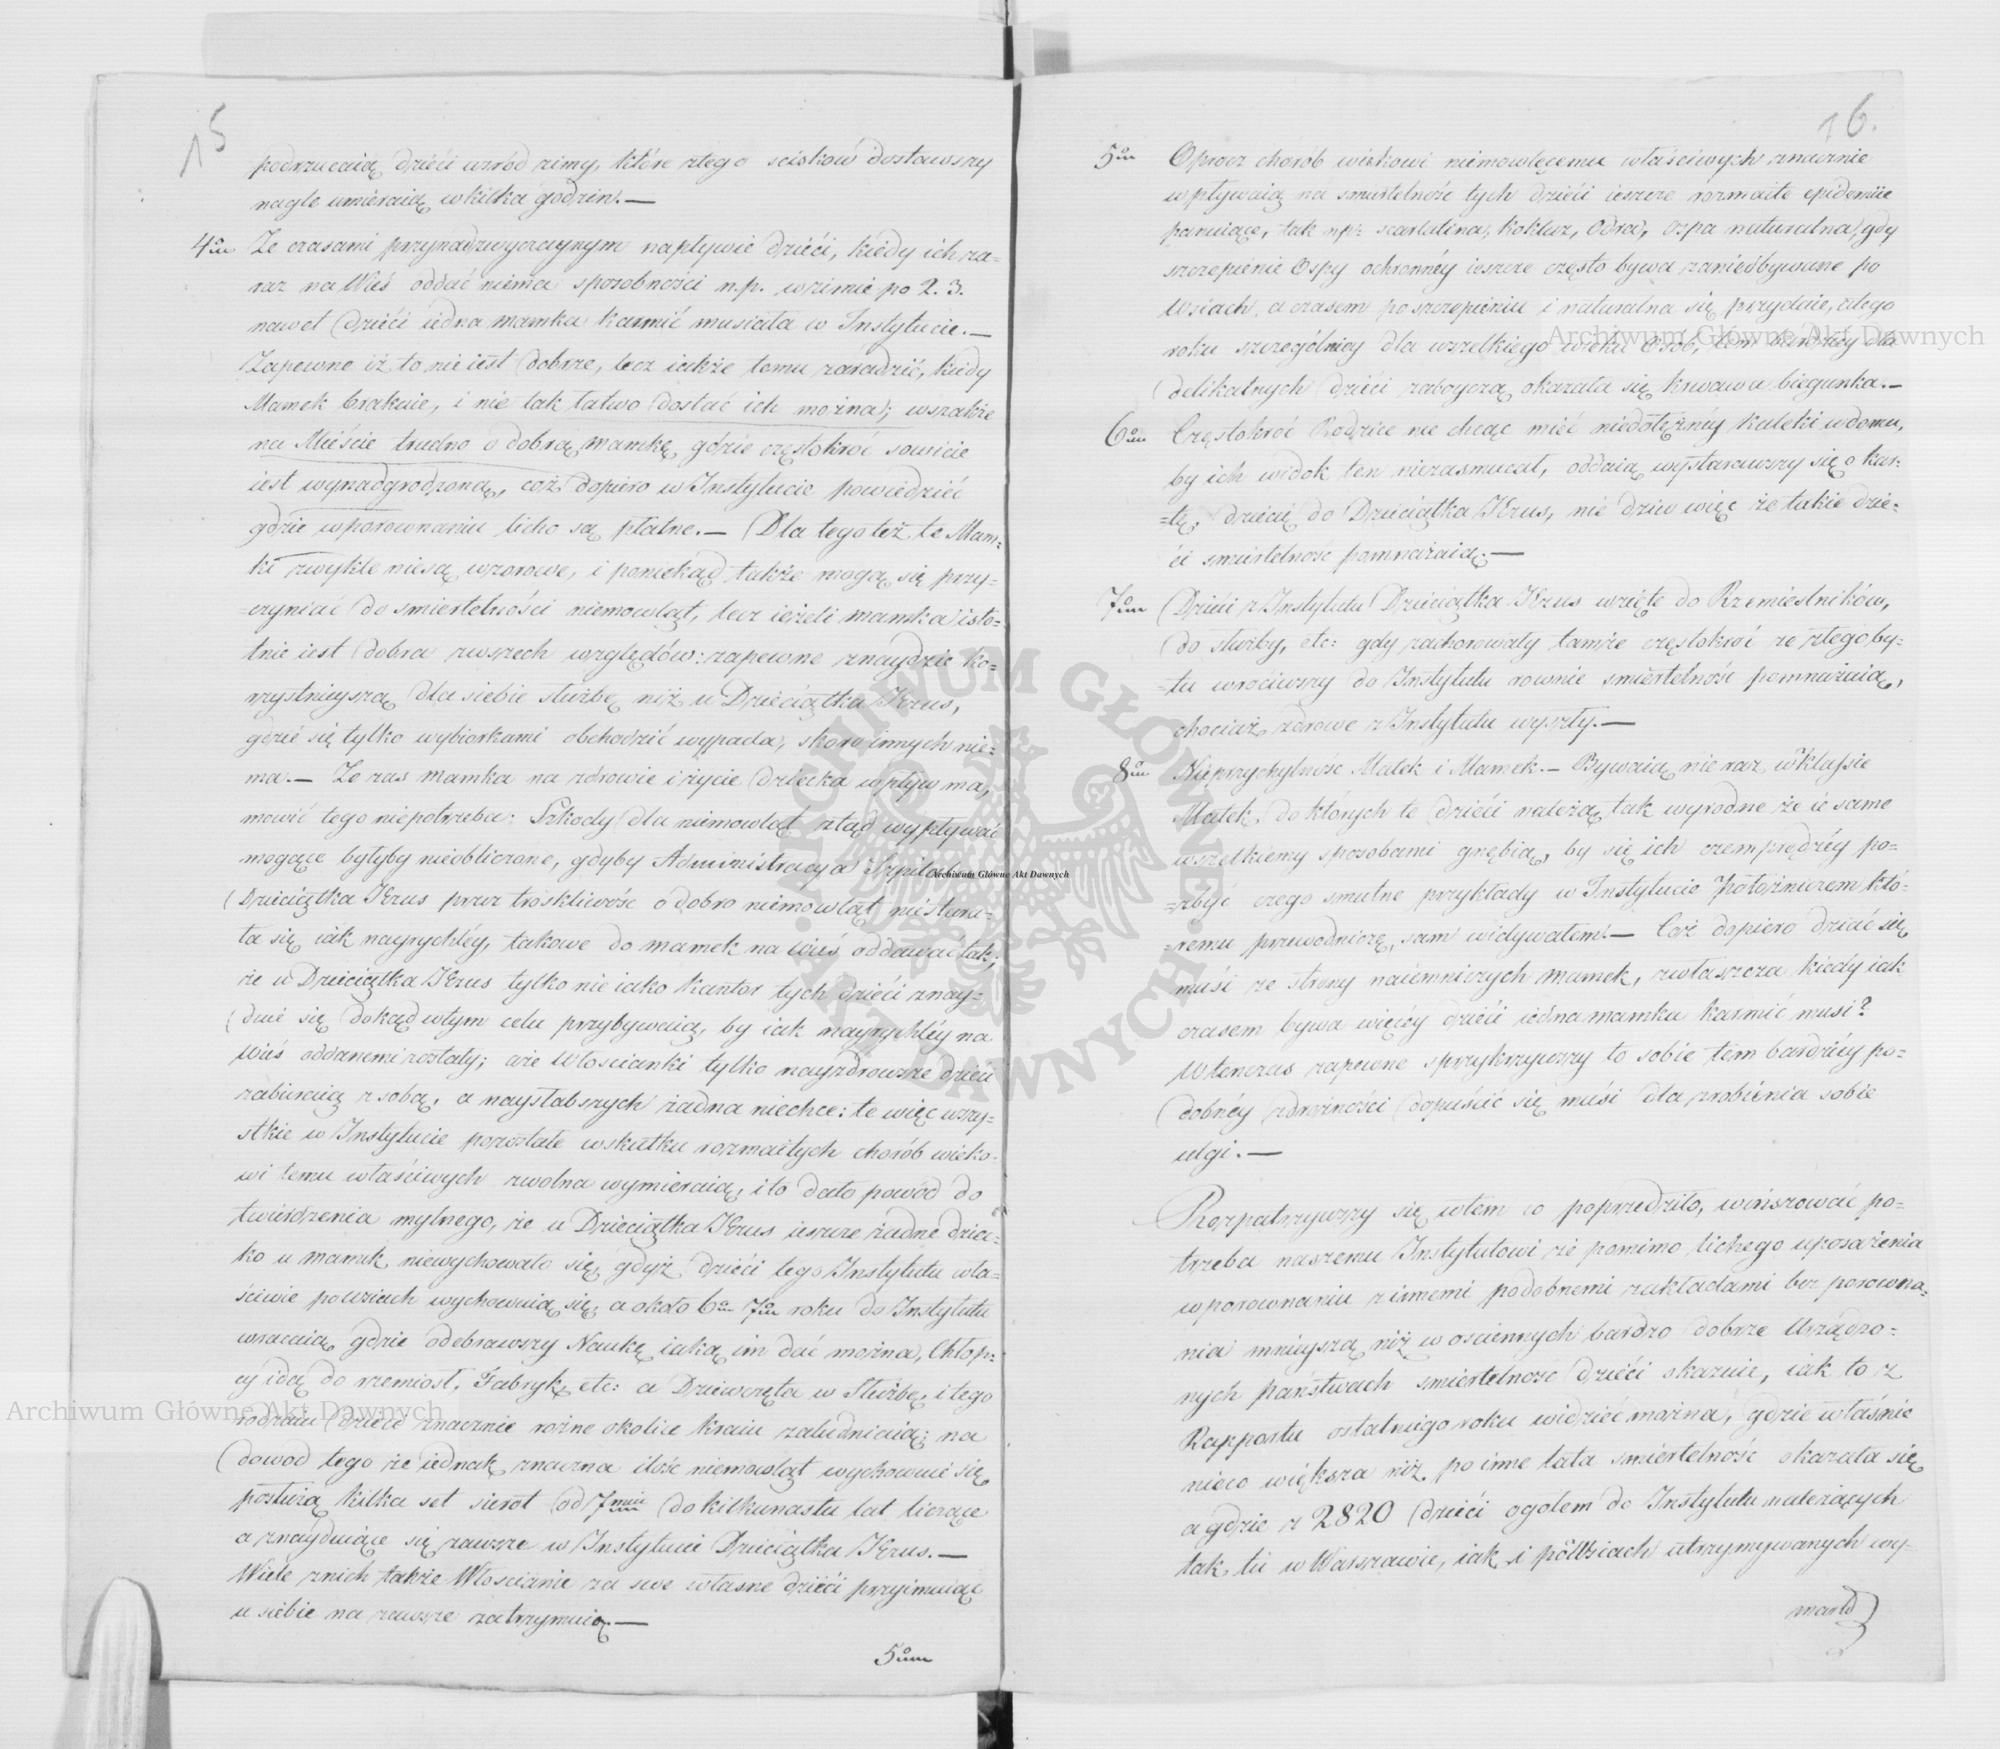 15
podrzucaią dzieci wśród zimy, które ztego sciskow dostawszy
nagle umieraią w kilka godzin. —
4um Ze czasami przynadzwyczaynym napływie dzieci, kiedy ich za-
raz na Wieś oddać niema sposobności n.p. w zimie po 2. 3.
nawet dzieci iedna mamka karmić musiała w Instytucie. —
Zapewne iż to nie iest dobrze, lecz iakże temu zaradzić, kiedy
Mamek brakuie, i nie tak łatwo dostać ich można; wszakże
na Mieście trudno o dobrą mamkę, gdzie częstokroć sowicie
iest wynadgrodzoną, coż dopiero w Instytucie powiedzieć
gdzie w porownaniu licho są płatne. — Dla tego też te Mam-
ki zwykle niesą wzorowe, i poniekąd także mogą się przy-
czyniać do smiertelności niemowląt, lecz ieżeli mamka isto-
tnie iest dobra zwszech względów: zapewne znaydzie ko-
rzystnieyszą dla siebie służbę niż u Dzieciątka Jezus,
gdzie się tylko wybiorkami obchodzić wypada, skoro innych nie-
ma. — Ze zas mamka na zdrowie i życie dziecka wpływ ma,
mowić tego niepotrzeba: Szkody dla niemowląt ztąd wypływać
mogące byłyby nieobliczone, gdyby Administracya Szpitala
Dzieciątka Jezus przez troskliwość o dobro niemowląt niestara-
ła się iak nayrychléy, takowe do mamek na wieś oddawać tak,
że u Dzieciątka Jezus tylko nie iako Kantor tych dzieci znay-
duie się dokąd wtym celu przybywaią, by iak nayrychléy na
wieś oddanemi zostały; że Włoscianki tylko nayzdrowsze dzieci
zabieraią z sobą, a naysłabszych żadna niechce: te więc wszy-
stkie w Instytucie pozostałe wskutku rozmaitych chorób wieko-
wi temu właściwych zwolna wymieraią, i to dało powód do
twierdzenia mylnego, że u Dzieciątka Jezus ieszcze żadne dziec-
ko u mamek niewychowało się, gdyż dzieci tego Instytutu wła-
ściwie po wsiach wychowuią się, a około 6o 7o roku do Instytutu
wracaią, gdzie odebrawszy Naukę iaką im dać można, Chłop-
cy idą do rzemiosł, Fabryk, etc: a Dziewczęta w Służbę, i tego
rodzaiu dzieci znacznie rożne okolice kraiu zaludniaią; na
dowod tego że iednak znaczna ilość niemowląt wychowuie się
posłużą kilka set sierot od 7miu do kilkunastu lat liczące
a znayduiące się zawsze w Instytucie Dzieciątka Jezus. —
Wiele znich także Włoscianie za swe własne dzieci przyimuiąc
u siebie na zawsze zatrzymuią. —
5um
16.
5um Oprocz chorób wiekowi niemowlęcemu właściwych znacznie
wpływaią na smiertelność tych dzieci ieszcze rozmaite epidemiie
panuiące, tak np: scarlatina, koklusz, Odra, ospa naturalna, gdy
szczepienie Ospy ochronnéy ieszcze często bywa zaniedbywane po
Wsiach, a czasem po szczepieniu i naturalna się przydaie, ztego
roku szczególniey dla wszelkiego wieku Osób, tem bardziey dla
delikatnych dzieci zaboyczą okazała się krwawa biegunka. —
6um Częstokroć Rodzice nie chcąc mieć niedołężnéy kaleki w domu,
by ich widok ten niezasmucał, oddaią wystarawszy się o kar-
tę, dziecię do Dzieciątka Jezus, nie dziw więc że takie dzie-
ci smiertelność pomnażaią. —
7um Dzieci z Instytutu Dzieciątka Jezus wzięte do Rzemieslników,
do służby, etc: gdy zachorowały tamże częstokroć ze złego by-
tu wrociwszy do Instytutu rownie smiertelność pomnażaią,
chociaż zdrowe z Instytutu wyszły. —
8um Nieprzychylność Matek i Mamek. — Bywaią nie raz w klassie
Matek, do których te dzieci należą, tak wyrodne że ie same
wszelkiemy sposobami gnębią, by się ich czemprędzéy po-
zbyć czego smutne przykłady w Instytucie Położniczem któ-
remu przewodniczę, sam widywałem. — Coż dopiero dziać się
musi ze strony naiemniczych mamek, zwłaszcza kiedy iak
czasem bywa więcéy dzieci iedna mamka karmić musi?
Wtenczas zapewne sprzykrzywszy to sobie tem bardziéy po-
dobnéy zdrożności dopuścić się musi dla zrobienia sobie
ulgi. —
Rozpatrzywszy się wtem co poprzedziło, winszować po-
trzeba naszemu Instytutowi że pomimo lichego uposażenia
w porownaniu z innemi podobnemi zakładami bez porowna-
nia mnieyszą niż w osciennych bardzo dobrze Urządzo-
nych państwach smiertelność dzieci okazuie, iak to z
Rapportu ostatniego roku widzieć można, gdzie właśnie
nieco większa niż po inne lata smiertelność okazała się
a gdzie z 2820 dzieci ogołem do Instytutu należących
tak tu w Warszawie, iak i po Wsiach utrzymywanych wy-
marło
ARCHIWUM GŁÓWNE AKT DAWNYCH
Archiwum Główne Akt Dawnych
Archiwum Główne Akt Dawnych
Archiwum Główne Akt Dawnych